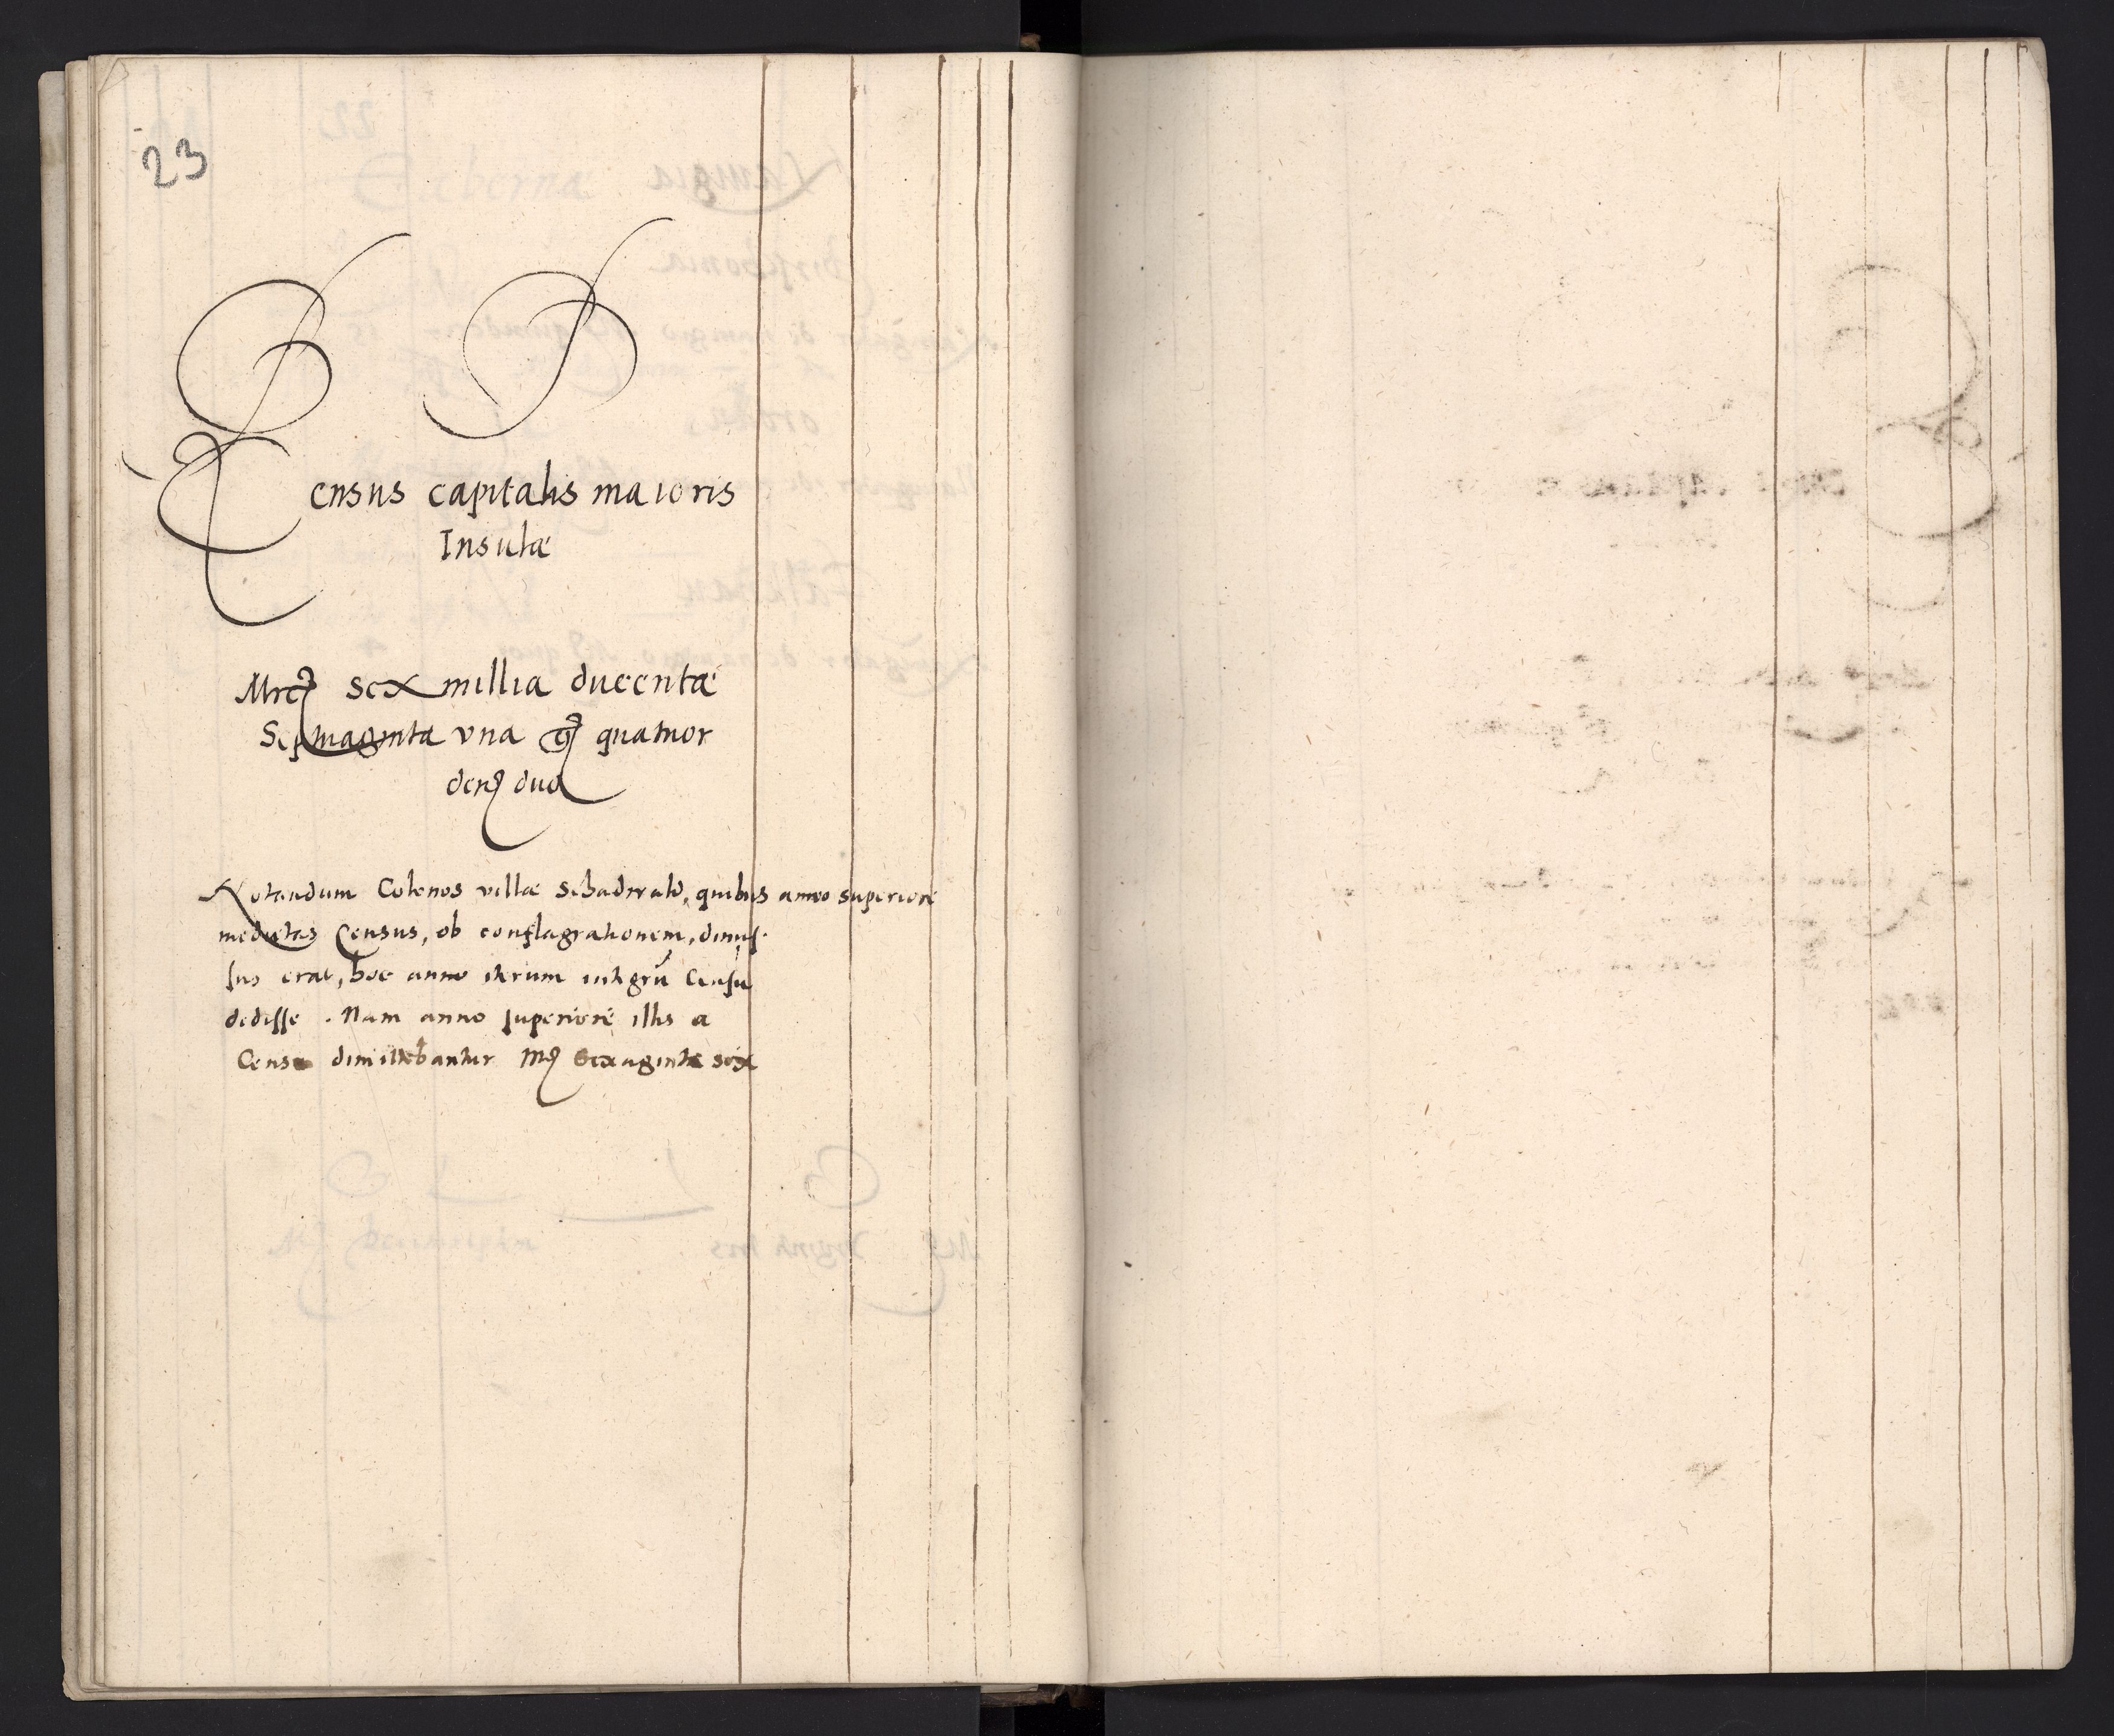 23
Census capitalis maioris
Insulæ
Mrc sex millia ducentæ
Septuaginta vna quatuor
den duo
Notandum Colonos villæ Schadwald, quibus anno superiore
medietas Census, ob conflagrationem, dimis
sus erat, hoc anno iterum integrū Censū
dedisse . Nam anno superiore illis a
Censu dimittebantur M Sexaginta sex